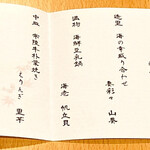 造里　海の幸盛り合わせ
妻彩々　山葵
温物　海鮮豆乳鍋
海老　帆立貝
中皿　常陸牛朴葉焼き
えりんぎ　里芋